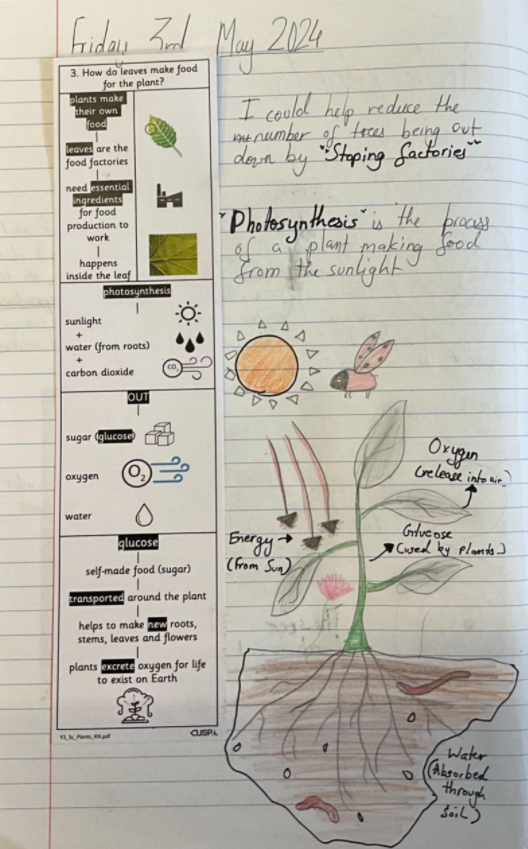 Friday 3rd May 2024
3. How do leaves make food
for the plant?
plants make
their own
food
leaves are the
food factories
need essential
ingredients
for food
production to
work
happens
inside the leaf
photosynthesis
sunlight
+
water (from roots)
+
carbon dioxide
CO₂
OUT
sugar (glucose)
oxygen
O₂
water
glucose
self-made food (sugar)
transported around the plant
helps to make new roots,
stems, leaves and flowers
plants excrete oxygen for life
to exist on Earth
Y3_Sc_Plants_KN.pdf
CUSP
I could help reduce the
number of trees being out
down by "Stoping factories"
"Photosynthesis" is the process
of a plant making food
from the sunlight
Oxygen
(release into air.)
Energy
(from Sun)
Glucose
(used by plants.)
Water
(Absorbed
through
Soil)